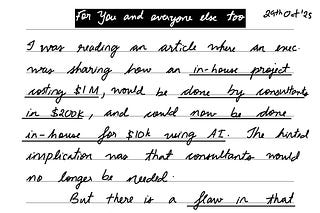 For You and everyone else too
29th Oct '25
I was reading an article where an exec
was sharing how an in-house project
costing $1M, would be done by consultants
in $200k, and could now be done
in-house for $10k using AI. The hinted
implication was that consultants would
no longer be needed.
But there is a flaw in that